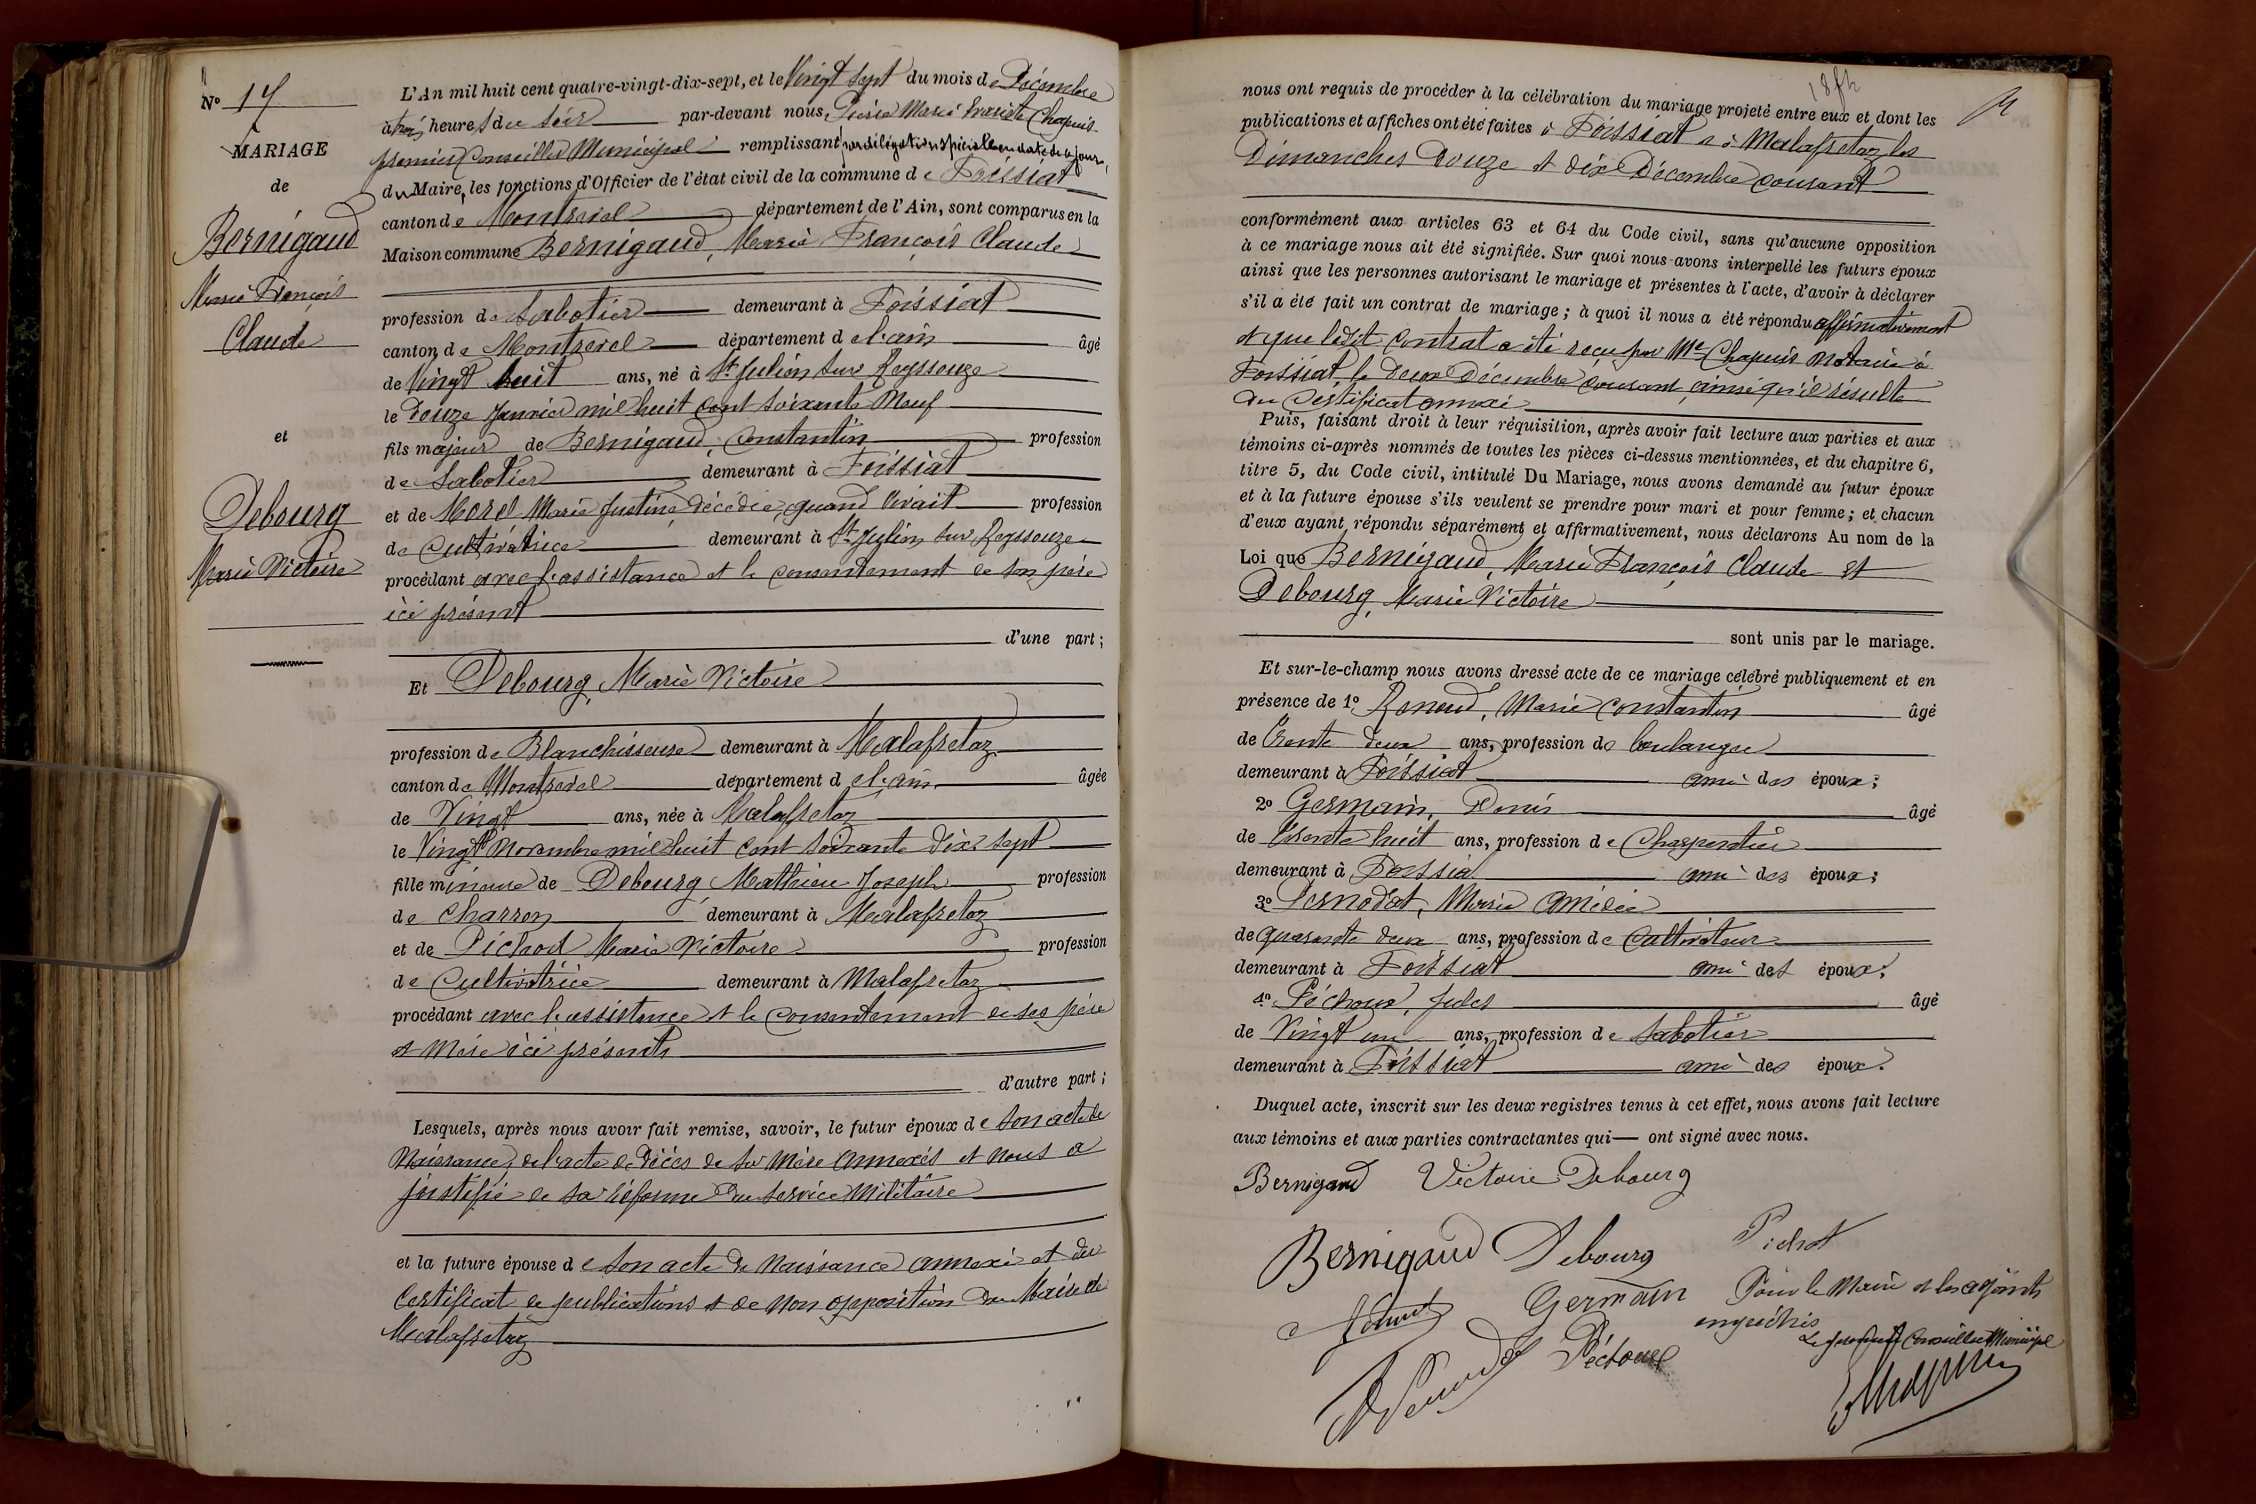 N° 17
MARIAGE
de
Bernigaud
Marie François
Claude
et
Debourg
Marie Victoire
L'An mil huit cent quatre-vingt-dix-sept, et le Vingt sept du mois de Décembre
à trois heures du soir par-devant nous, Marie Evariste Chapuis
premier Conseiller Municipal remplissant par délégation spéciale en date de ce jour,
du Maire, les fonctions d'Officier de l'état civil de la commune de Foissiat
canton de Montrevel département de l'Ain, sont comparus en la
Maison commune Bernigaud, Marie François Claude
profession de Sabotier demeurant à Foissiat
canton de Montrevel département de l'ain âgé
de Vingt huit ans, né à St Julien sur Reyssouze
le douze Janvier mil huit cent soixante Neuf
fils majeur de Bernigaud, Constantin profession
de Sabotier demeurant à Foissiat
et de Morel Marie Justine décédée, quand vivait profession
de Cultivatrice demeurant à St Julien sur Reyssouze
procédant avec l'assistance et le consentement de son père
ici présent
d'une part ;
Et Debourg, Marie Victoire
profession de Blanchisseuse demeurant à Malafretaz
canton de Montrevel département de l'ain âgée
de Vingt ans, née à Malafretaz
le Vingt Novembre mil huit cent soixante dix sept
fille mineure de Debourg Mathieu Joseph profession
de Charron demeurant à Malafretaz
et de Pichod Marie Victoire profession
de Cultivatrice demeurant à Malafretaz
procédant avec l'assistance et le consentement de ses père
et Mère ici présents
d'autre part ;
Lesquels, après nous avoir fait remise, savoir, le futur époux de son acte de
Naissance, de l'acte de décès de sa Mère annexés et nous a
justifié de sa réforme du service Militaire
et la future épouse de son acte de Naissance annexé et du
Certificat de publications et de Non opposition du Maire de
Malafretaz
nous ont requis de procéder à la célébration du mariage projeté entre eux et dont les
publications et affiches ont été faites à Foissiat et à Malafretaz les
Dimanches Douze et dix Décembre courant
conformément aux articles 63 et 64 du Code civil, sans qu'aucune opposition
à ce mariage nous ait été signifiée. Sur quoi nous avons interpellé les futurs époux
ainsi que les personnes autorisant le mariage et présentes à l'acte, d'avoir à déclarer
s'il a été fait un contrat de mariage ; à quoi il nous a été répondu affirmativement
et que ledit Contrat a été reçu par Me Chapuis Notaire à
Foissiat, le deux Décembre courant, ainsi qu'il résulte
du Certificat annexé
Puis, faisant droit à leur réquisition, après avoir fait lecture aux parties et aux
témoins ci-après nommés de toutes les pièces ci-dessus mentionnées, et du chapitre 6,
titre 5, du Code civil, intitulé Du Mariage, nous avons demandé au futur époux
et à la future épouse s'ils veulent se prendre pour mari et pour femme ; et chacun
d'eux ayant répondu séparément et affirmativement, nous déclarons Au nom de la
Loi que Bernigaud, Marie François Claude et
Debourg, Marie Victoire
sont unis par le mariage.
Et sur-le-champ nous avons dressé acte de ce mariage célébré publiquement et en
présence de 1° Marie Constantin âgé
de trente deux ans, profession de boulanger
demeurant à Foissiat ami des époux ;
2° Germain, Denis âgé
de trente huit ans, profession de Charpentier
demeurant à Foissiat ami des époux ;
3° Pernodat, Marie Amédée
de quarante deux ans, profession de Cultivateur
demeurant à Foissiat ami des époux ;
4° Péchoux, Jules âgé
de Vingt un ans, profession de Sabotier
demeurant à Foissiat ami des époux.
Duquel acte, inscrit sur les deux registres tenus à cet effet, nous avons fait lecture
aux témoins et aux parties contractantes qui ont signé avec nous.
Bernigaud Victoire Debourg
Bernigaud Debourg Pichod
Germain Pour le Maire et les adjoints
empêchés
Le premier Conseiller Municipal
Péchoux